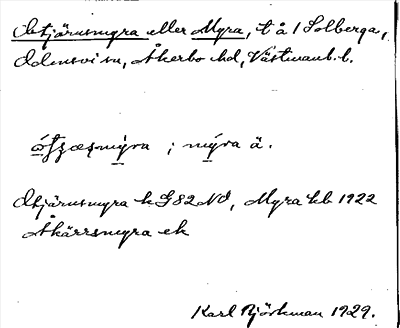 Åtjärnsmyra eller Myra, t å 1 Solberga,
Odensvi sn, Åkerbo hd, Västmanl. l.
mýra ä.
Åtjärnsmyra k G82 NO, Myra kb 1922
Åkärrsmyra ek
Karl Björkman 1929.